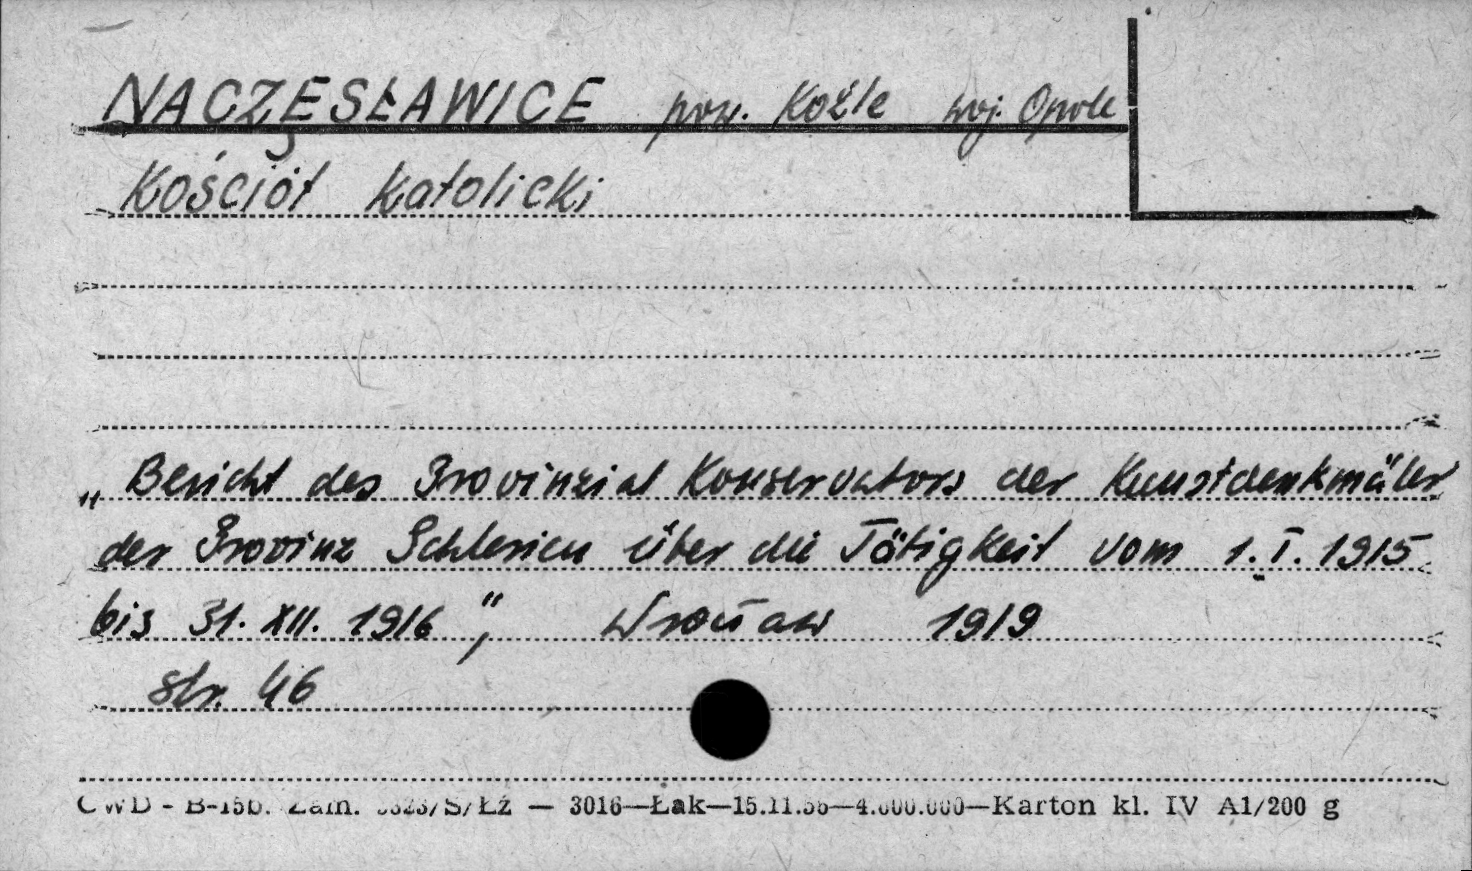 NACZĘSŁAWICE pow. Koźle woj. Opole
Kościół katolicki
„Bericht des Provinzial Konservators der Kunstdenkmäler
der Provinz Schlesien über die Tätigkeit vom 1.I.1915
bis 31.XII.1916", Wrocław 1919
str. 46
CWD - B-15b. Zam. /S/Łź — 3016—Łak—15.11.56—4.000.000—Karton kl. IV A1/200 g